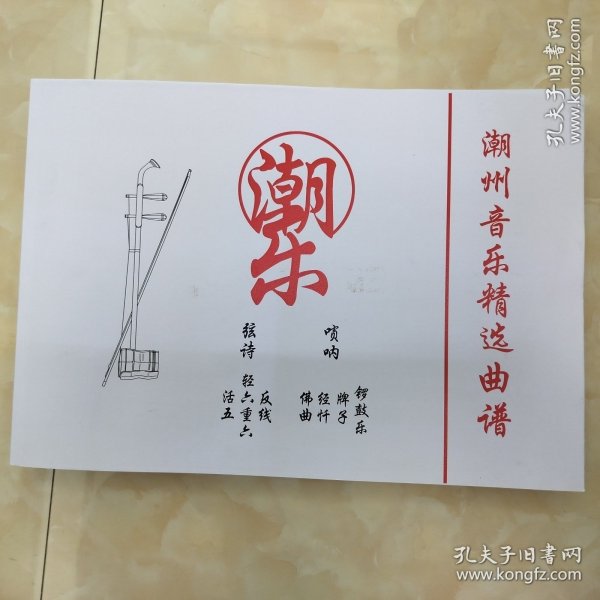 潮州音乐精选曲谱
潮乐
唢呐
锣鼓乐
牌子
经忏
佛曲
弦诗
反线
轻六重六
活五
孔夫子旧书网
www.kongfz.com
孔夫子旧书网
www.kongfz.com